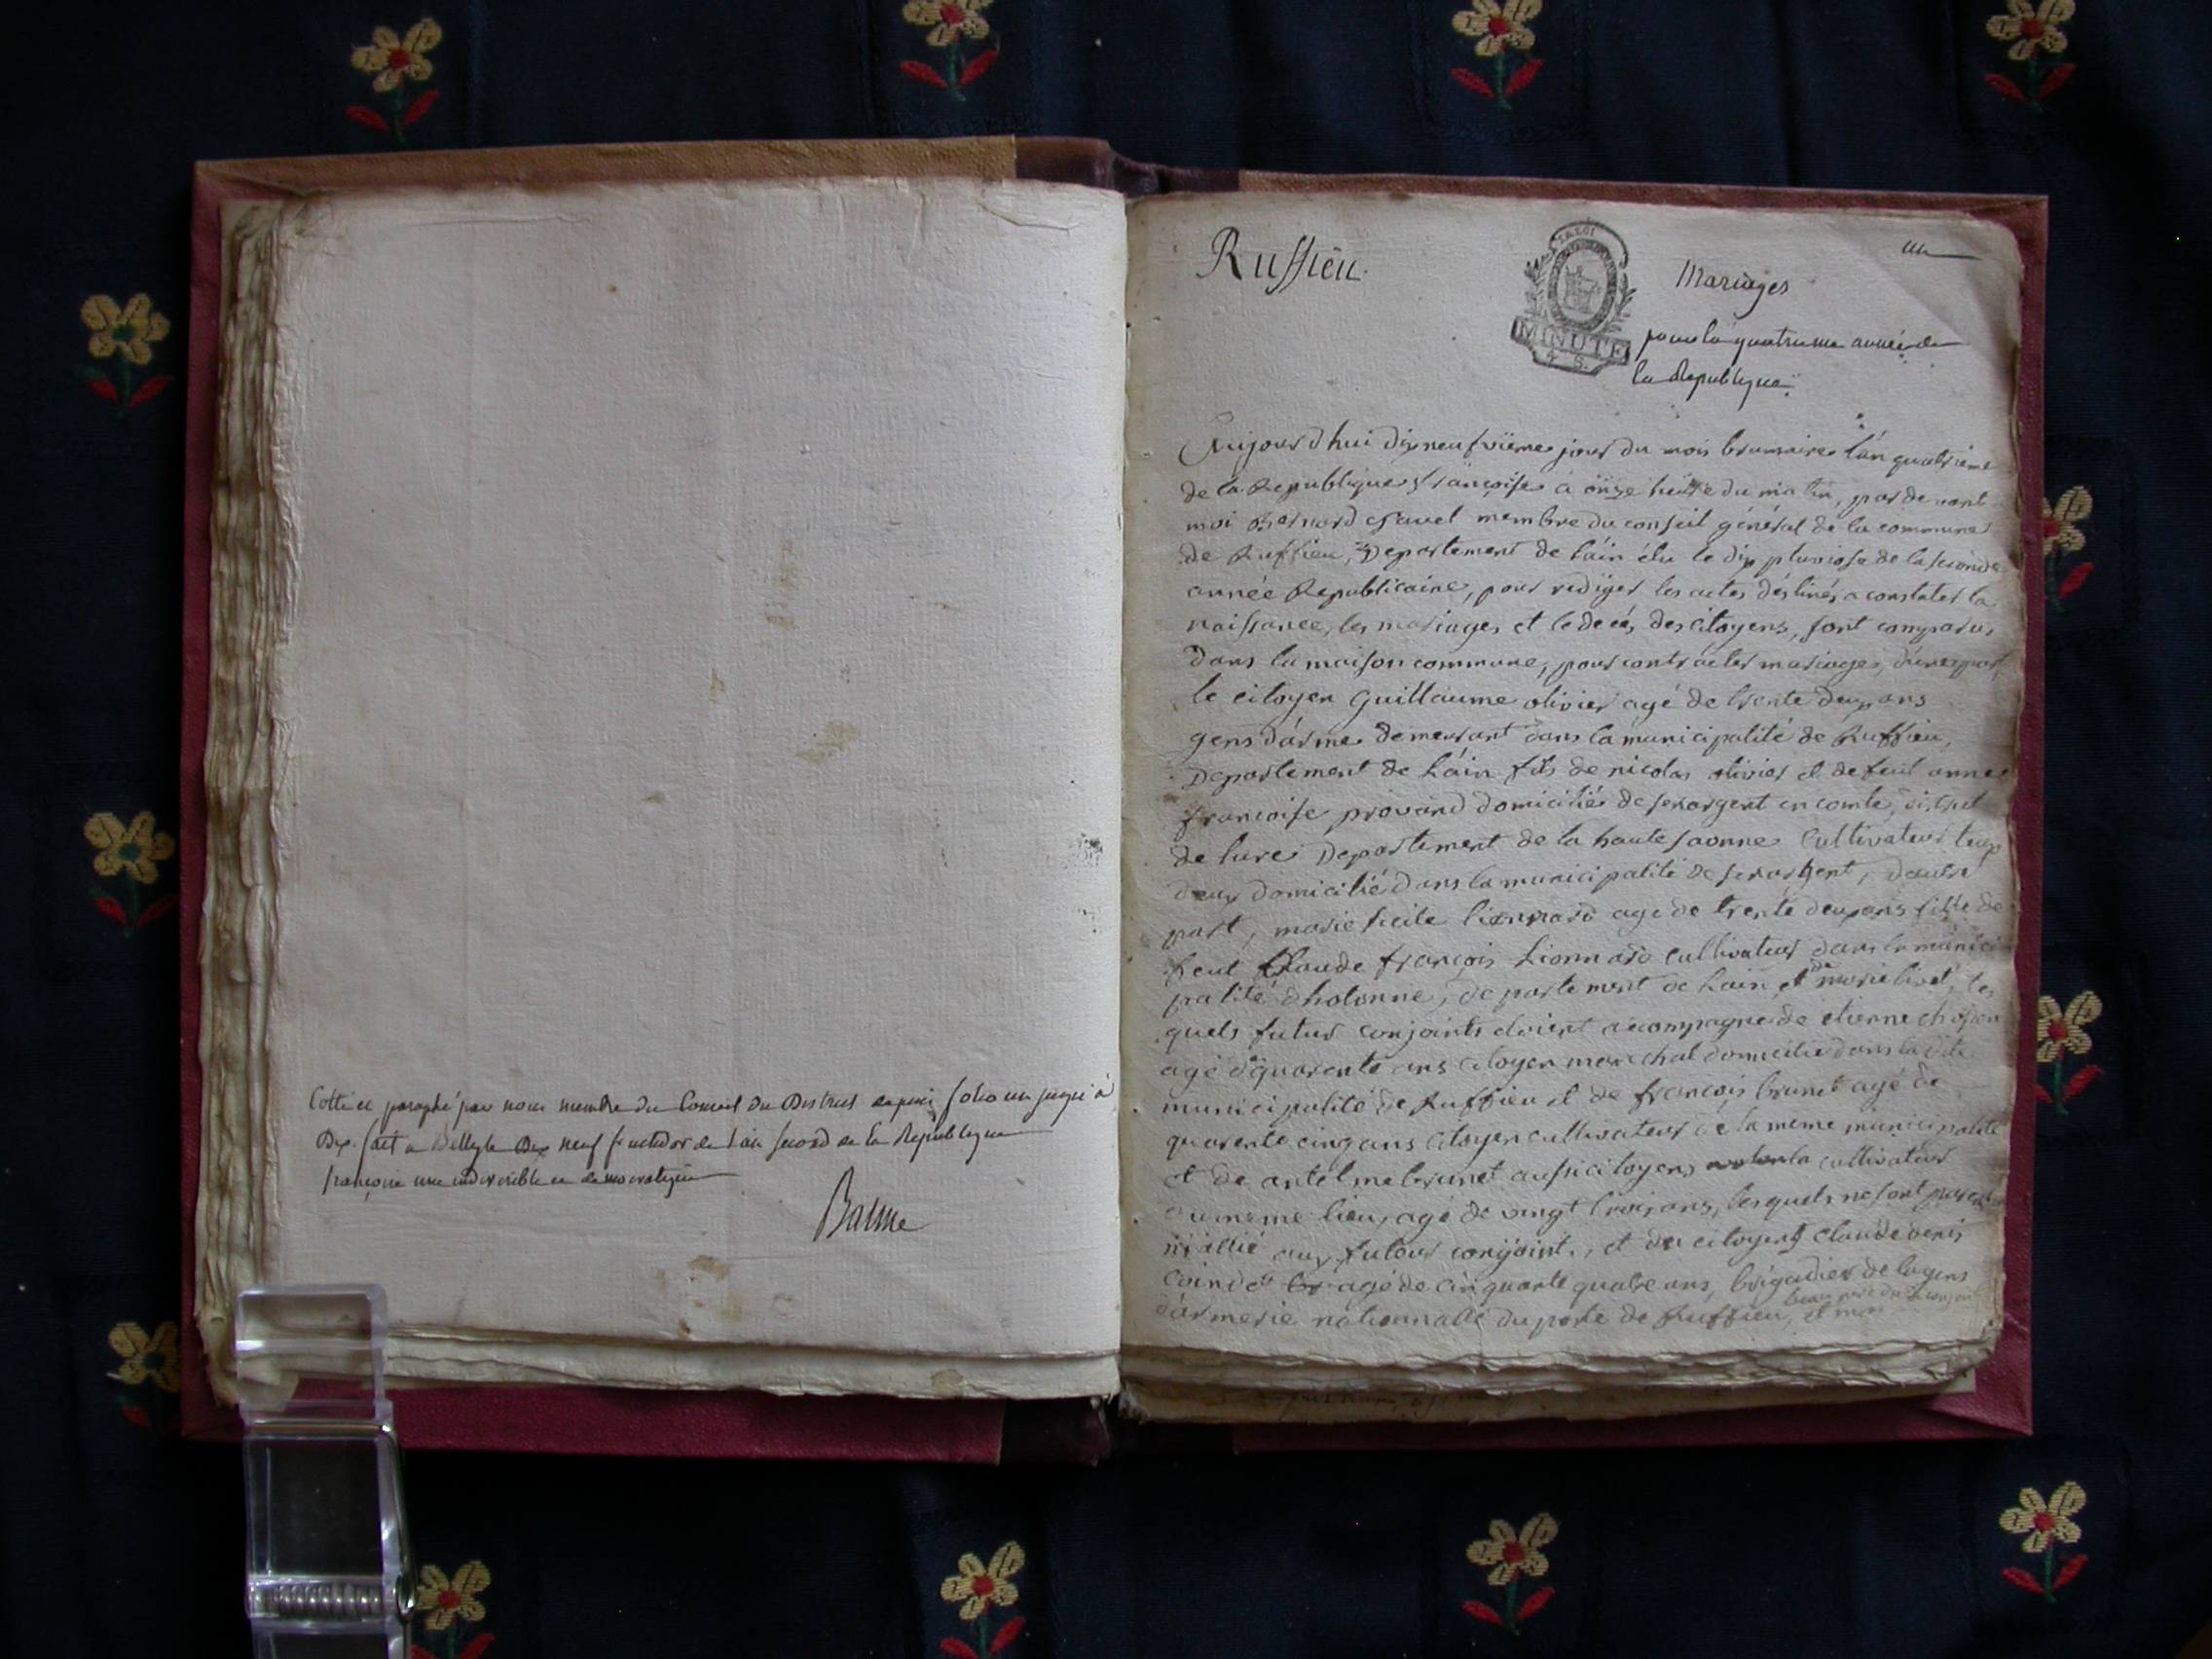 Cotté et paraphé par nous membre du Conseil du District depuis folio un jusqu'à
Dix. fait a Belley le Dix neuf fructidor de l'an second de la Republique
françoise une indivisible et democratique
Balme
Ruffieu.
LA LOI
MINUTE
4 S.
un
Mariages
pour la quatrieme année de
la Republique.
Aujourd'hui dix neufvieme jour du mois brumaire l'an quatrieme
de la Republique françoise a onze heure du matin, par devant
moi Bernard membre du conseil général de la commune
de Ruffieu, Departement de l'ain élu le dix pluviose de la seconde
année Republicaine, pour rediger les actes déstinés a constater la
naissance, les mariages et le décés des citoyens, sont comparus
dans la maison commune, pour contracter mariage, d'une part
le citoyen Guillaume olivier agé de trente deux ans
gens d'arme demeurant dans la municipalité de Ruffieu,
Departement de l'ain fils de nicolas olivier et de feut anne
françoise domicilié de servargent en comté, district
de lure Departement de la haute saonne cultivateur
deux domicilié dans la municipalité de servargent, d'autre
part, marie agé de trente deux ans fille de
feut Claude françois Lionnard cultivateur dans la munici
palité d'hotonne, departement de l'ain et de marie livet, les
quels futur conjoints etoient accompagné de etienne
agé de quarente ans citoyen marechal domicilié dans la dite
municipalité de Ruffieu et de françois brunet agé de
quarente cinq ans citoyen cultivateur de la meme municipalité
et de antelme brunet aussi citoyen cultivateur
du meme lieu, agé de vingt trois ans, les quels ne sont parent
ni allié aux futeur conjoint., et du citoyent claude denis
coindet agé de cinquante quatre ans, brigadier de la gens
d'armerie nationnalle du poste de Ruffieu, et